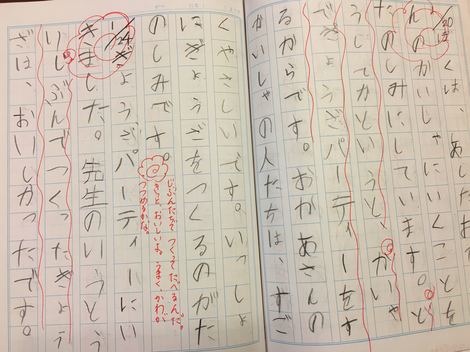 20日
くは、あしたお
んのかいしゃにいくこと
たのしみにしています。と
うしてかというと、かいしゃ
でぎょうざパーティーをす
るからです。おかあさんの
かいしゃの人たちは、すご
くやさしいです。いっしょ
にぎょうざをつくるのがた
のしみです。
じぶんたちでつくってたべるんだ。
きっと、おいしいよ。うまく、かわが
つつめるかな。
ぎょうざパーティーにい
きました。先生のいうとう
りじぶんでつくったぎょう
ざは、おいしかったです。